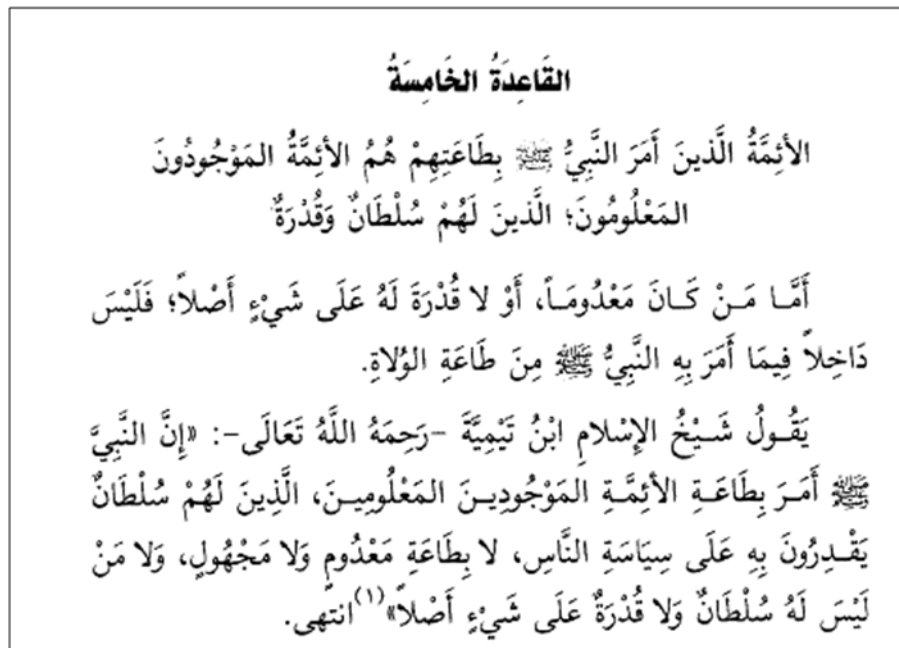 القَاعِدَةُ الخَامِسَةُ
الأئِمَّةُ الَّذينَ أَمَرَ النَّبِيُّ ﷺ بِطَاعَتِهِمْ هُمُ الأئِمَّةُ المَوْجُودُونَ
المَعْلُومُونَ؛ الَّذينَ لَهُمْ سُلْطَانٌ وَقُدْرَةٌ
أَمَّا مَنْ كَانَ مَعْدُومَاً، أَوْ لا قُدْرَةَ لَهُ عَلَى شَيْءٍ أَصْلاً؛ فَلَيْسَ
دَاخِلاً فِيمَا أَمَرَ بِهِ النَّبِيُّ ﷺ مِنَ طَاعَةِ الوُلاةِ.
يَقُولُ شَيْخُ الإِسْلامِ ابْنُ تَيْمِيَّةَ -رَحِمَهُ اللَّهُ تَعَالَى-: «إِنَّ النَّبِيَّ
ﷺ أَمَرَ بِطَاعَةِ الأَئِمَّةِ المَوْجُودِينَ المَعْلُومِينَ، الَّذِينَ لَهُمْ سُلْطَانٌ
يَقْدِرُونَ بِهِ عَلَى سِيَاسَةِ النَّاسِ، لا بِطَاعَةِ مَعْدُومٍ وَلا مَجْهُولٍ، وَلا مَنْ
لَيْسَ لَهُ سُلْطَانٌ وَلا قُدْرَةٌ عَلَى شَيْءٍ أَصْلاً»(١) انتهى.